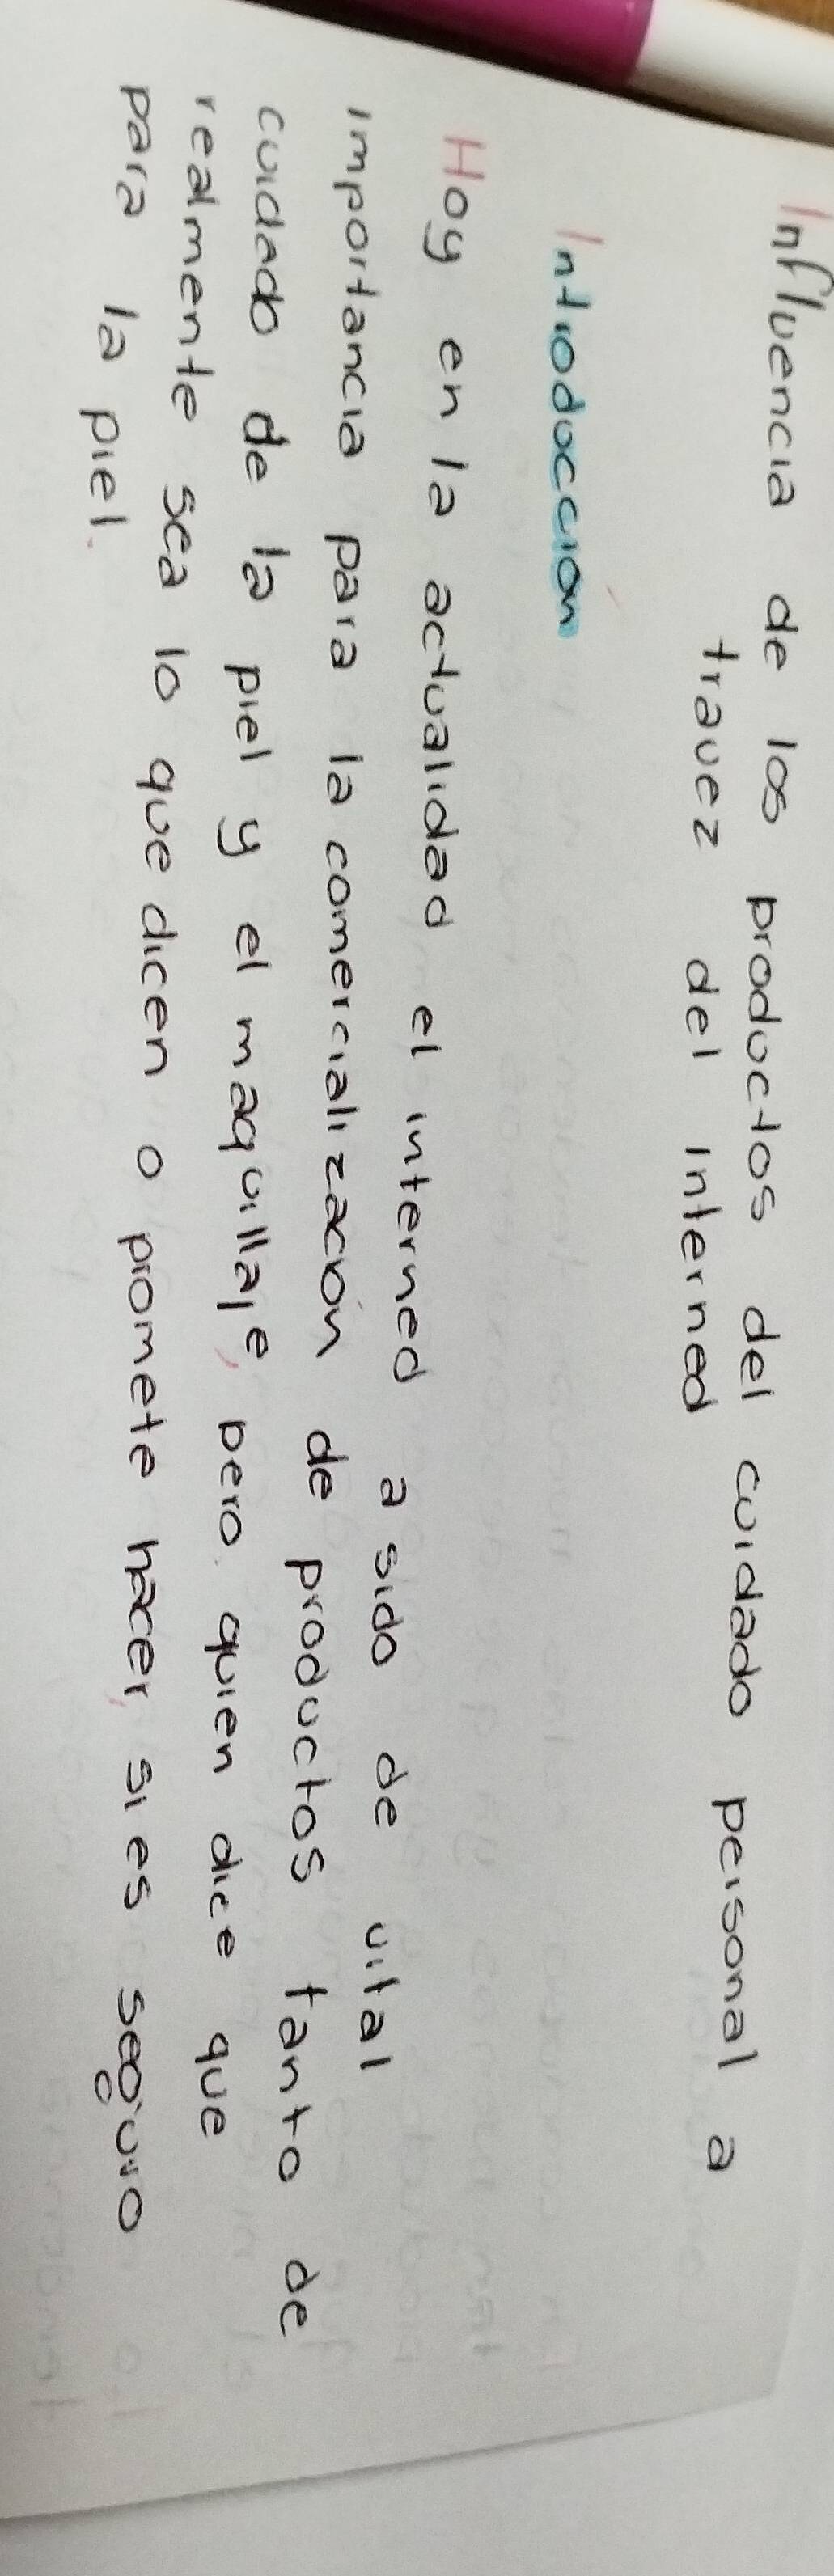 Influencia de los productos del cuidado personal a
travez del interned
Introducción
Hoy en la actualidad el interned a sido de vital
importancia para la comercialización de productos tanto de
cuidado de la piel y el maquillaje, pero quien dice que
realmente sea lo que dicen o promete hacer, si es seguro
para la piel.